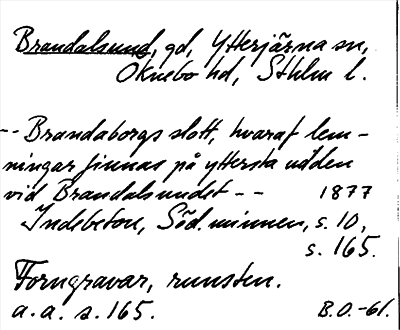 Brandalsund, gd, Ytterjärna sn,
Öknebo hd, Sthlm l.
-- Brandaborgs slott, hvaraf lem-
ningar finnas på yttersta udden
vid Brandalsundet -- 1877
Indebetou, Söd. minnen, s. 10,
s. 165.
Forngravar, runsten.
a. a. s. 165. B.O.-61.